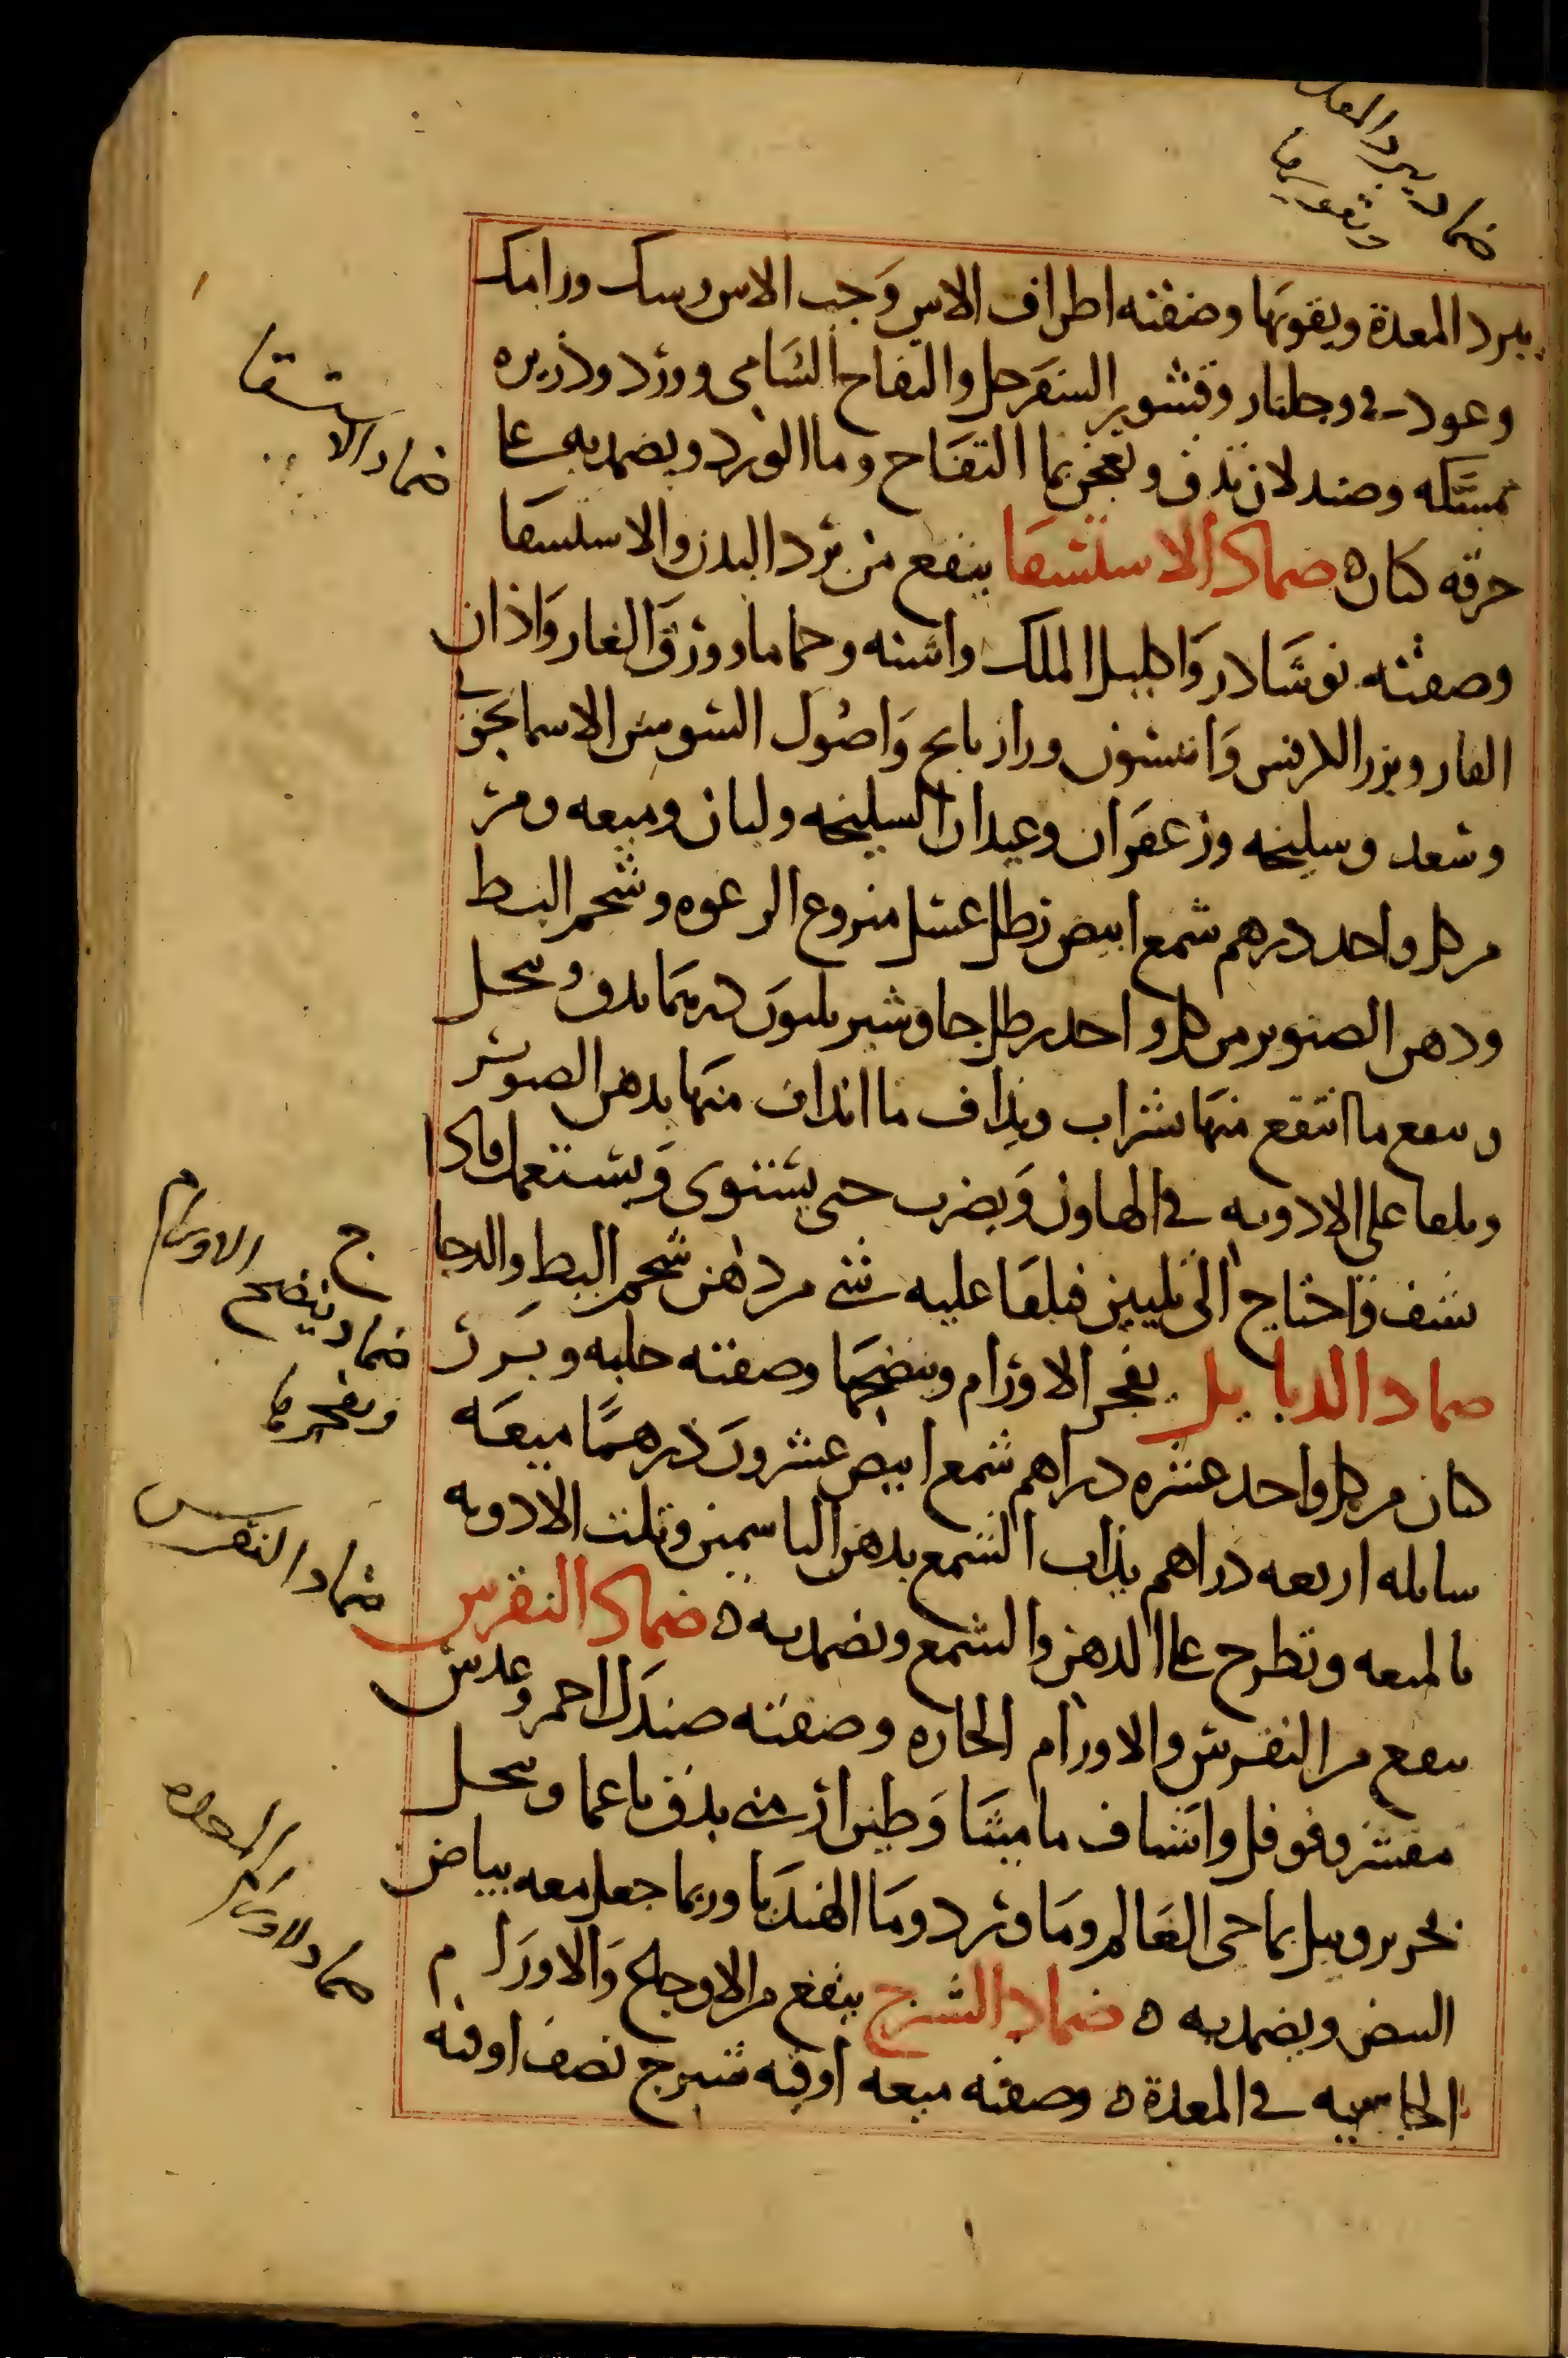 ضماد يبرد المعدة
ويقويها
يبرد المعدة ويقويها وصفته اطراف الاس وحب الاس وسك ورامك
وعود ني وجلنار وقشور السفرجل والتفاح الشامي وورد وذريره
ممسكه وصندلان تدق وتعجن بما التفاح وما الورد ويضمد به على
خرقه كتان ضماد الاستسقا ينفع من برد البدن والاستسقا
وصفته نوشادر واكليل الملك واشنه وحماما وورق الغار واذان
الفار وبزر الكرفس وانيسون ورازيانج واصول السوسن الاسمانجوني
وسعد وسليخه وزعفران وعيدان السليخه ولبان وميعه ومر
من كل واحد درهم شمع ابيض رطل عسل منزوع الرغوه وشحم البط
ودهن الصنوبر من كل واحد رطل جاوشير ثلثون درهما يدق وينخل
وينقع ما انتقع منها بشراب ويذاف ما انداف منها بدهن الصنوبر
ويلقا على الادويه في الهاون ويضرب حتى يستوى ويستعمل فاذا
نشف واحتاج الى تليين فيلقا عليه شي من دهن شحم البط والدجا
ج
ضماد الدبابيل يفجر الاورام وينضجها وصفته حلبه وبزر
كتان من كل واحد عشره دراهم شمع ابيض عشرون درهما ميعه
سايله اربعه دراهم يذاب الشمع بدهن الياسمين وتلت الادويه
بالميعه وتطرح على الدهن والشمع وتضمد به ضماد النقرس
ينفع من النقرس والاورام الحاره وصفته صندل احمر وعدس
مقشر وفوفل واشياف ماميثا وطين ارمني يدق ناعما وينخل
بحرير ويبل بما حي العالم وما ورد وما الهندبا وربما جعل معه بياض
البيض ويضمد به ضماد الشيرج ينفع من الاوجاع والاورام
الجاسيه في المعدة وصفته ميعه اوقيه شيرج نصف اوقيه
ضماد الاستسقا
ضماد ينضج الاورام
ويفجرها
ضماد النقرس
ضماد لاورام المعده